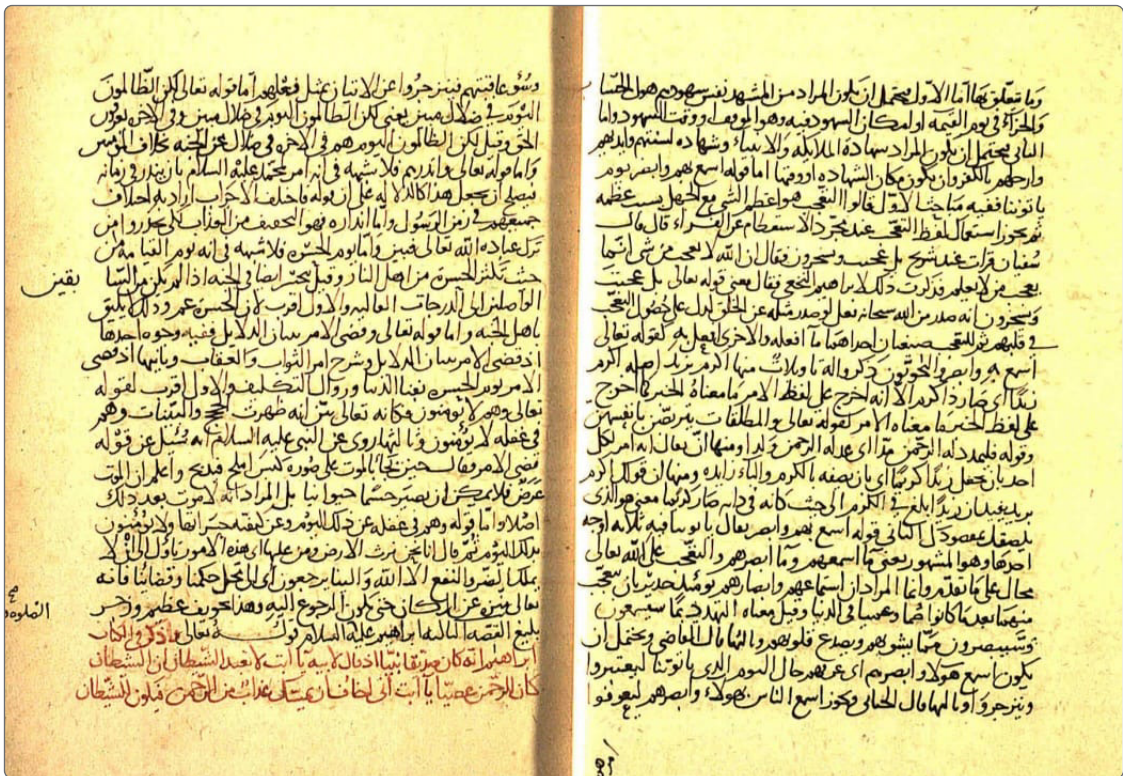 وما يتعلق بها اما الاول فيحتمل ان يكون المراد من المشهد نفس شهودهم هول الحسا
والجزاء في يوم القيمه او مكان الشهود فيه وهو الموقف او وقت الشهود واما
الثاني فيحتمل ان يكون المراد شهادة الملايكه والانبياء وشهاده السنتهم وايديهم
وارجلهم بالكفر وان يكون مكان الشهاده او وقتها اما قوله اسمع بهم وابصر يوم
ياتوننا ففيه مباحث الاول قالوا التعجب هو استعظام الشي مع الجهل بسبب عظمه
ثم يجوز استعمال لفظ التعجب عند مجرد الاستعظام عن الفراء قال قال
سفيان قرات عند شريح بل عجبت ويسخرون فقال ان الله لا يعجب من شي انما
يعجب من لا يعلم فذكرت ذلك لابراهيم النخعي فقال معنى قوله تعالى بل عجبت
ويسخرون انه صدر من الله سبحانه فعل لو صدر مثله عن الخلق لدل على حصول التعجب
في قلبهم ثم للتعجب صيغتان احداهما ما افعله والاخرى افعل به كقوله تعالى
اسمع بهم وابصر والنحويون ذكروا له تاويلات منها اكرم بزيد اصله اكرم
زيد اي صار ذا كرم الا انه اخرج على لفظ الامر ما معناه الخبر كما اخرج
على لفظ الخبر ما معناه الامر كقوله تعالى والمطلقات يتربصن بانفسهن
وقوله فليمدد له الرحمن مدا اي يمد له الرحمن مدا ومنها ان يقال انه امر لكل
احد بان يجعل زيدا كريما اي بان يصفه بالكرم والباء زايده ومنها ان قولك اكرم
بزيد يفيد ان زيدا بلغ في الكرم الى حيث كانه في ذاته صار كرما
الثاني قوله اسمع بهم وابصر يقال يا فيه ثلاثه اوجه
احدها وهو المشهور يعني ما اسمعهم وما ابصرهم والتعجب على الله تعالى
محال على ما تقدم وانما المراد ان اسماعهم وابصارهم يومئذ جدير بان يتعجب
منهما بعد ما كانوا صما وعميا في الدنيا وقيل معناه التهدد بما سيسمعون
وسيبصرون مما يسوهم ويصدع قلوبهم وثالثها قال القاضي ويحتمل ان
يكون اسمع هولاء وابصرهم اي عرفهم حال اليوم الذي ياتوننا ليعتبروا
وينزجروا وثالثها قال الجبائي ويجوز اسمع الناس بهولاء وابصرهم ليعرفوا
وسوء عاقبتهم فينزجروا عن الاتيان بمثل فعلهم اما قوله تعالى لكن الظالمون
اليوم في ضلال مبين يعني لكن الظالمون اليوم في ضلال مبين وفي الاخره يعرفون
الحق وقيل لكن الظالمون اليوم هم في الاخره في ضلال عن الجنه بخلاف المؤمنين
واما قوله تعالى وانذرهم فلا شبهه في انه امر لمحمد عليه السلام بان ينذر في زمانه
فيصلح ان يجعل هذا كالدلاله على ان قوله فاختلف الاحزاب اراد به اختلاف
جميعهم في زمن الرسول واما انذاره فهو التخويف من العذاب لكي يحذروا من
ترك عباده الله تعالى واما يوم الحسره فلا شبهه في انه يوم القيامه من
حيث تكثر الحسره من اهل النار وقيل يتحسر ايضا في الجنه اذا لم يكن من السا
يقين
الواصلين الى الدرجات العاليه والاول اقرب لان الحسره غم وذلك لا يليق
باهل الجنه واما قوله تعالى وقضي الامر ببيان الدلايل ففيه وجوه احدها
اذ قضي الامر ببيان الدلايل وشرح امر الثواب والعقاب وثانيها اذ قضي
الامر يوم الحسره بفناء الدنيا وزوال التكليف والاول اقرب لقوله
تعالى وهم لا يؤمنون فكانه تعالى بين انه ظهرت الحجج والبينات وهم
في غفله لا يؤمنون وثالثها روي عن النبي عليه السلام انه سئل عن قوله
قضي الامر فقال حين يجاء بالموت على صورة كبش املح فيذبح واعلم ان الموت
عرض فلا يمكن ان يصير جسما حيوانيا بل المراد انه لا موت بعد ذلك
اصلا واما قوله وهم في غفله عن ذلك اليوم وعن كيفيه حسراتها ولا يؤمنون
بذلك اليوم ثم قال انا نحن نرث الارض ومن عليها اي هذه الامور تؤل الى ان لا
يملك الضر والنفع الا الله والينا يرجعون اي الى محل حكمنا وقضائنا فانه
تعالى منزه عن المكان حتى يكون الرجوع اليه وهذا تخويف عظيم وزجر
بليغ القصه الثالثه ابراهيم عليه السلام قوله تعالى واذكر في الكتاب
ابراهيم انه كان صديقا نبيا اذ قال لابيه يا ابت لا تعبد الشيطان ان الشيطان
كان للرحمن عصيا يا ابت اني اخاف ان يمسك عذاب من الرحمن فتكون للشيطان